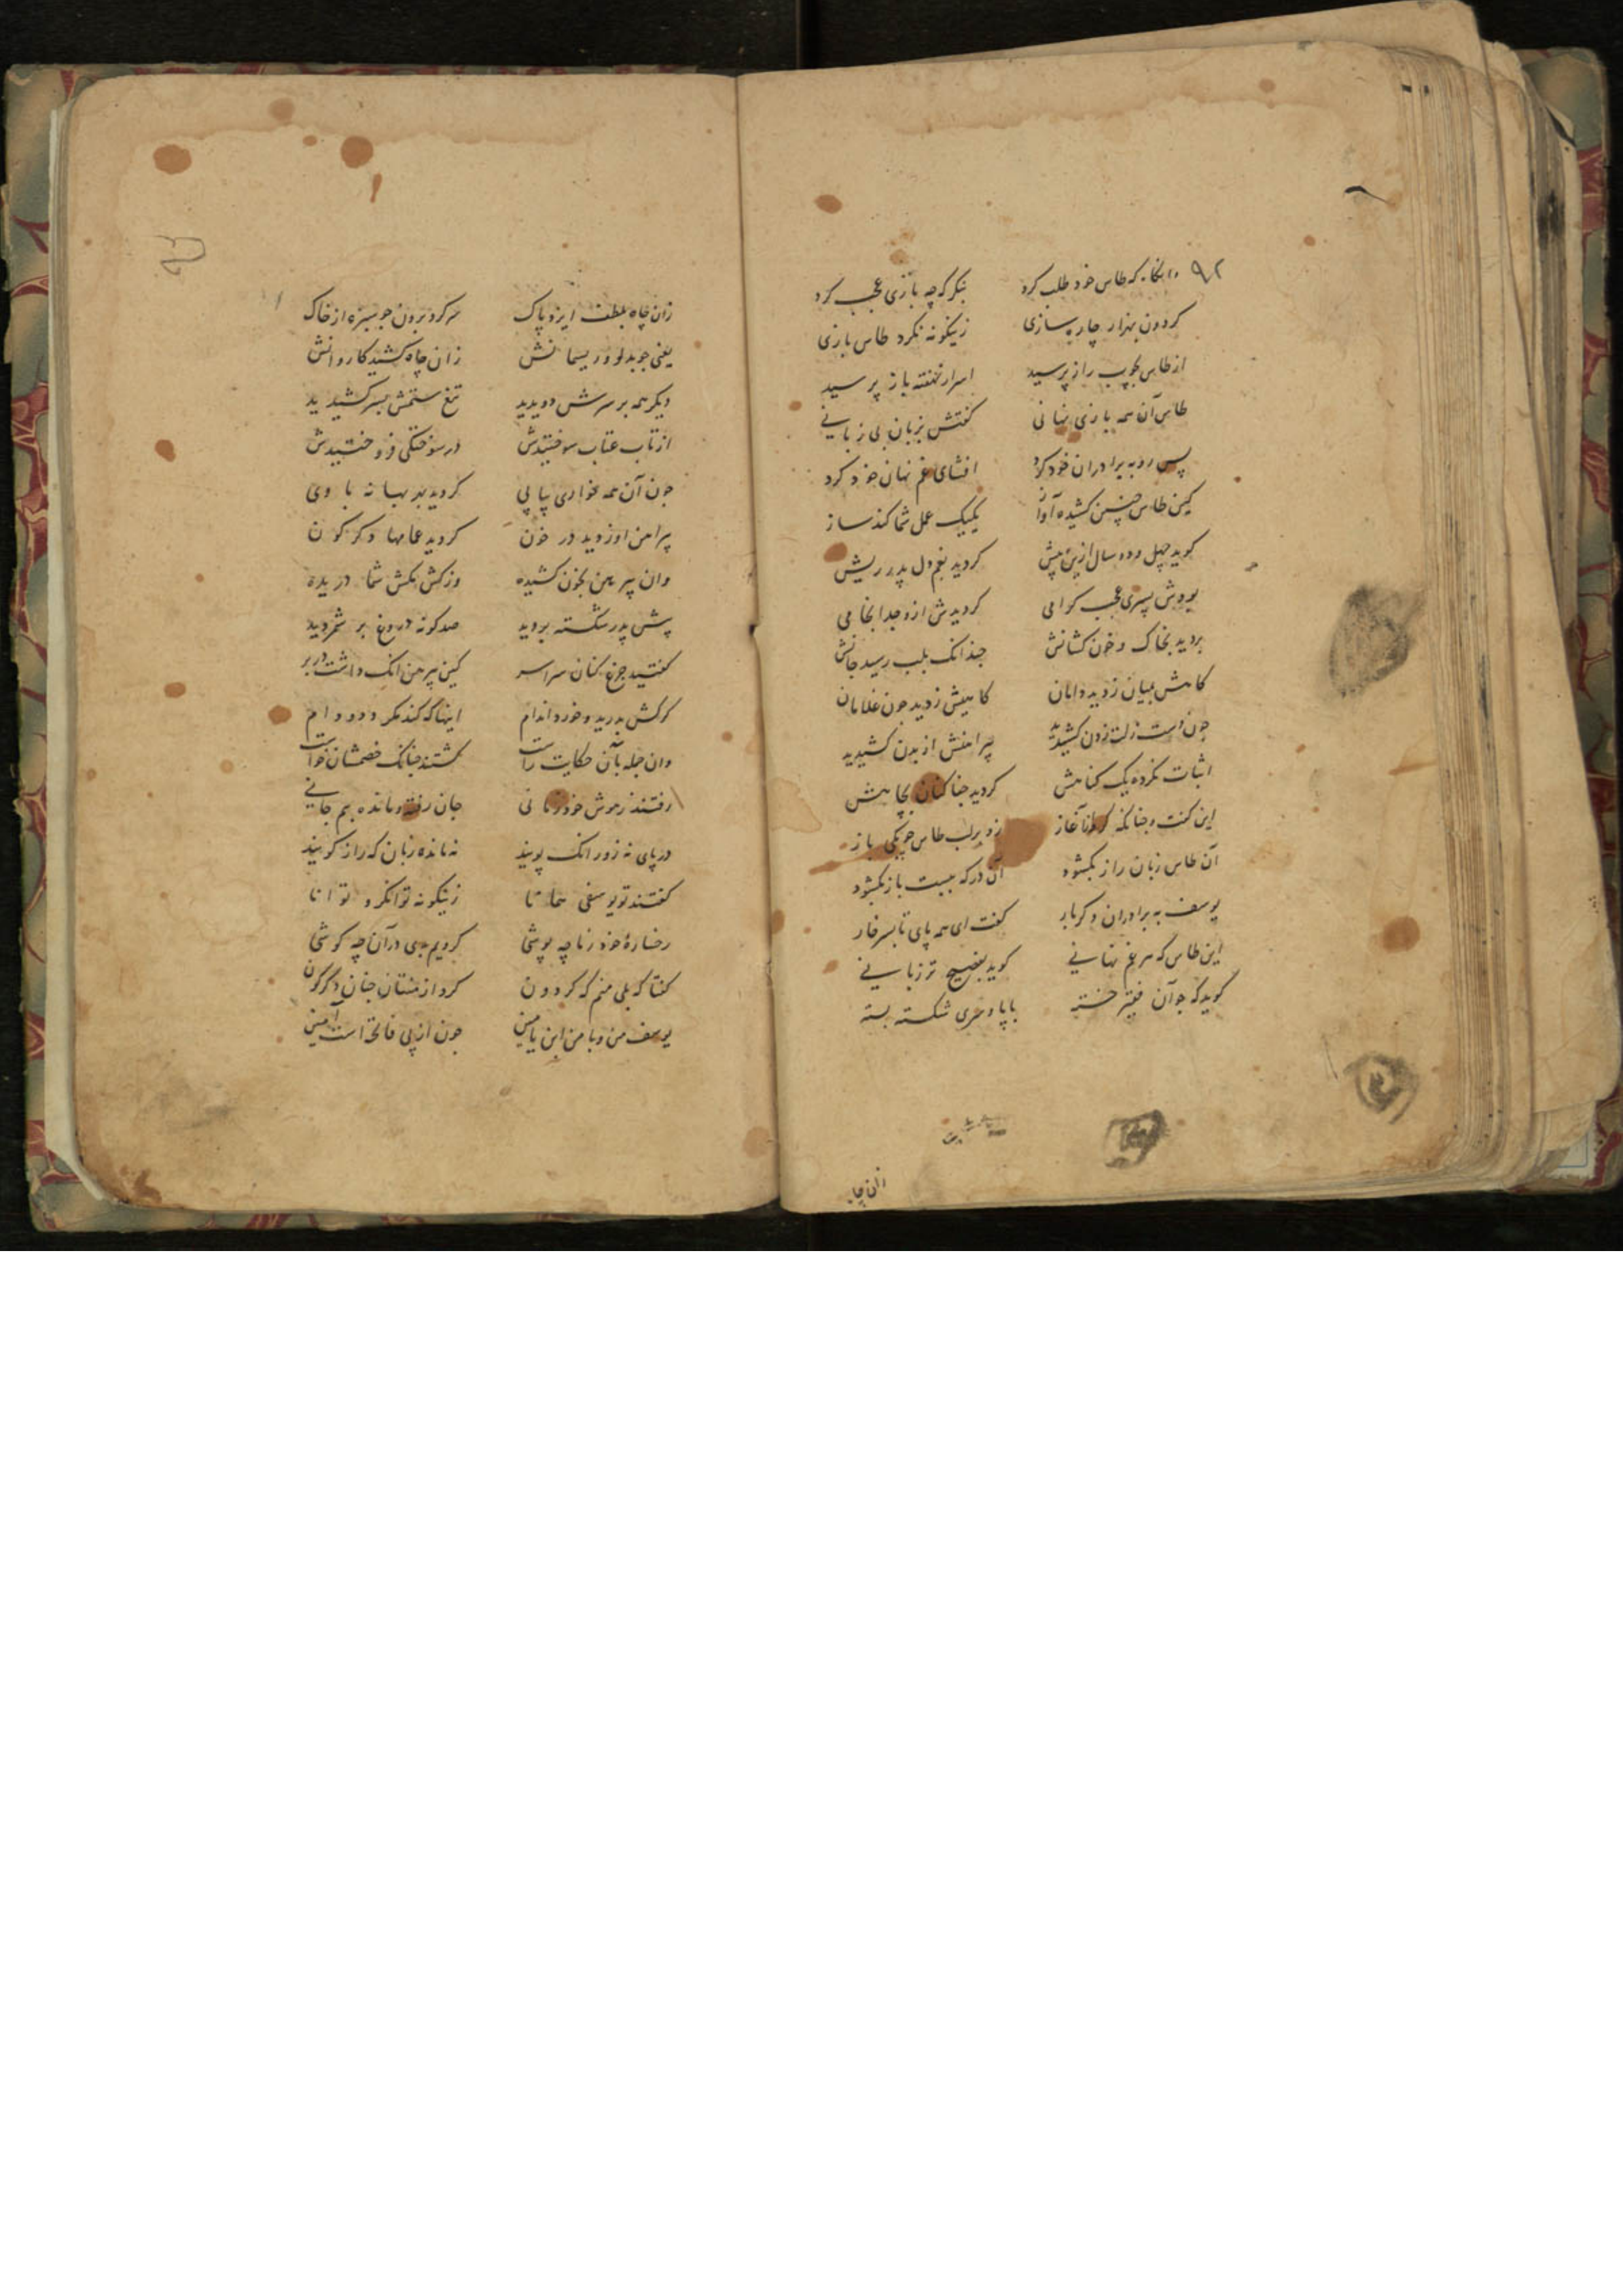 ۹۲ وانگاه که طاس خود طلب کرد بنکر که چه بازی عجب کرد
کردون بهزار چاره سازی زینکونه نکرد طاس بازی
از طاس بچوب راز پرسید اسرار نهفته باز پرسید
طاس آن همه بازی نهانی کفتش بزبان بی زبانی
پس رو به برادران خود کرد افشای غم نهان خود کرد
کین طاس چنین کشیده آواز یکیک عمل شما کند ساز
کوید چهل و دو سال ازین پیش کردید بغم دل پدر ریش
بودش پسری عجب کرامی کردیدش ازو جدا بخامی
بردید بخاک و خون کشانش چندانک بلب رسید جانش
کاهش بمیان زدید دامان کاهیش زدید چون غلامان
چون دست زلت زدن کشیدید پیراهنش از بدن کشیدید
اثبات نکرده یک کناهش کردید جفا کنان بچاهش
این کفت و چنانکه کرد آغاز زد بر لب طاس چوبکی باز
آن طاس زبان راز بکشود آن در که ببست باز بکشود
یوسف به برادران دکر بار کفت ای همه پای تا بسر خار
این طاس که سر غم نهانی کوید بفصیح تر زبانی
کوید که چو آن فقیر خسته با پا و سری شکسته بسته
زان چاه
زان چاه بلطف ایزد پاک سر کرد برون چو سبزه از خاک
یعنی چو بدلو و ریسمانش زان چاه کشید کاروانش
دیکر همه بر سرش دویدید تیغ ستمش بسر کشیدید
از تاب عتاب سوختیدش در سوختکی فروختیدش
چون آن همه خواری پیاپی کردید بد بهانه با وی
پیراهن او زدید در خون کردید عمامها دکرکون
وان پیرهن بخون کشیده وز کش مکش شما دریده
پیش پدر شکسته بردید صد کونه دروغ بر شمردید
کفتید جزع کنان سراسر کین پیرهن انک داشت در بر
کرکش بدرید و خورد اندام اینها که کند مکر دد و دام
وان جمله بآن حکایت راست کشتند چنانک خصمشان خواست
رفتند ز هوش خود زمانی جان رفته و مانده بیم جانی
در پای نه زور انک پویند نه مانده زبان که راز کویند
کفتند تو یوسفی همانا زینکونه توانکر و توانا
رخساره خود ز ما چه پوشی کردیم بدی در آن چه کوشی
کفتا که بلی منم که کردون کرد از منتان چنان دکرکون
یوسف من و با من ابن یامین چون از پی فاتحه است آمین